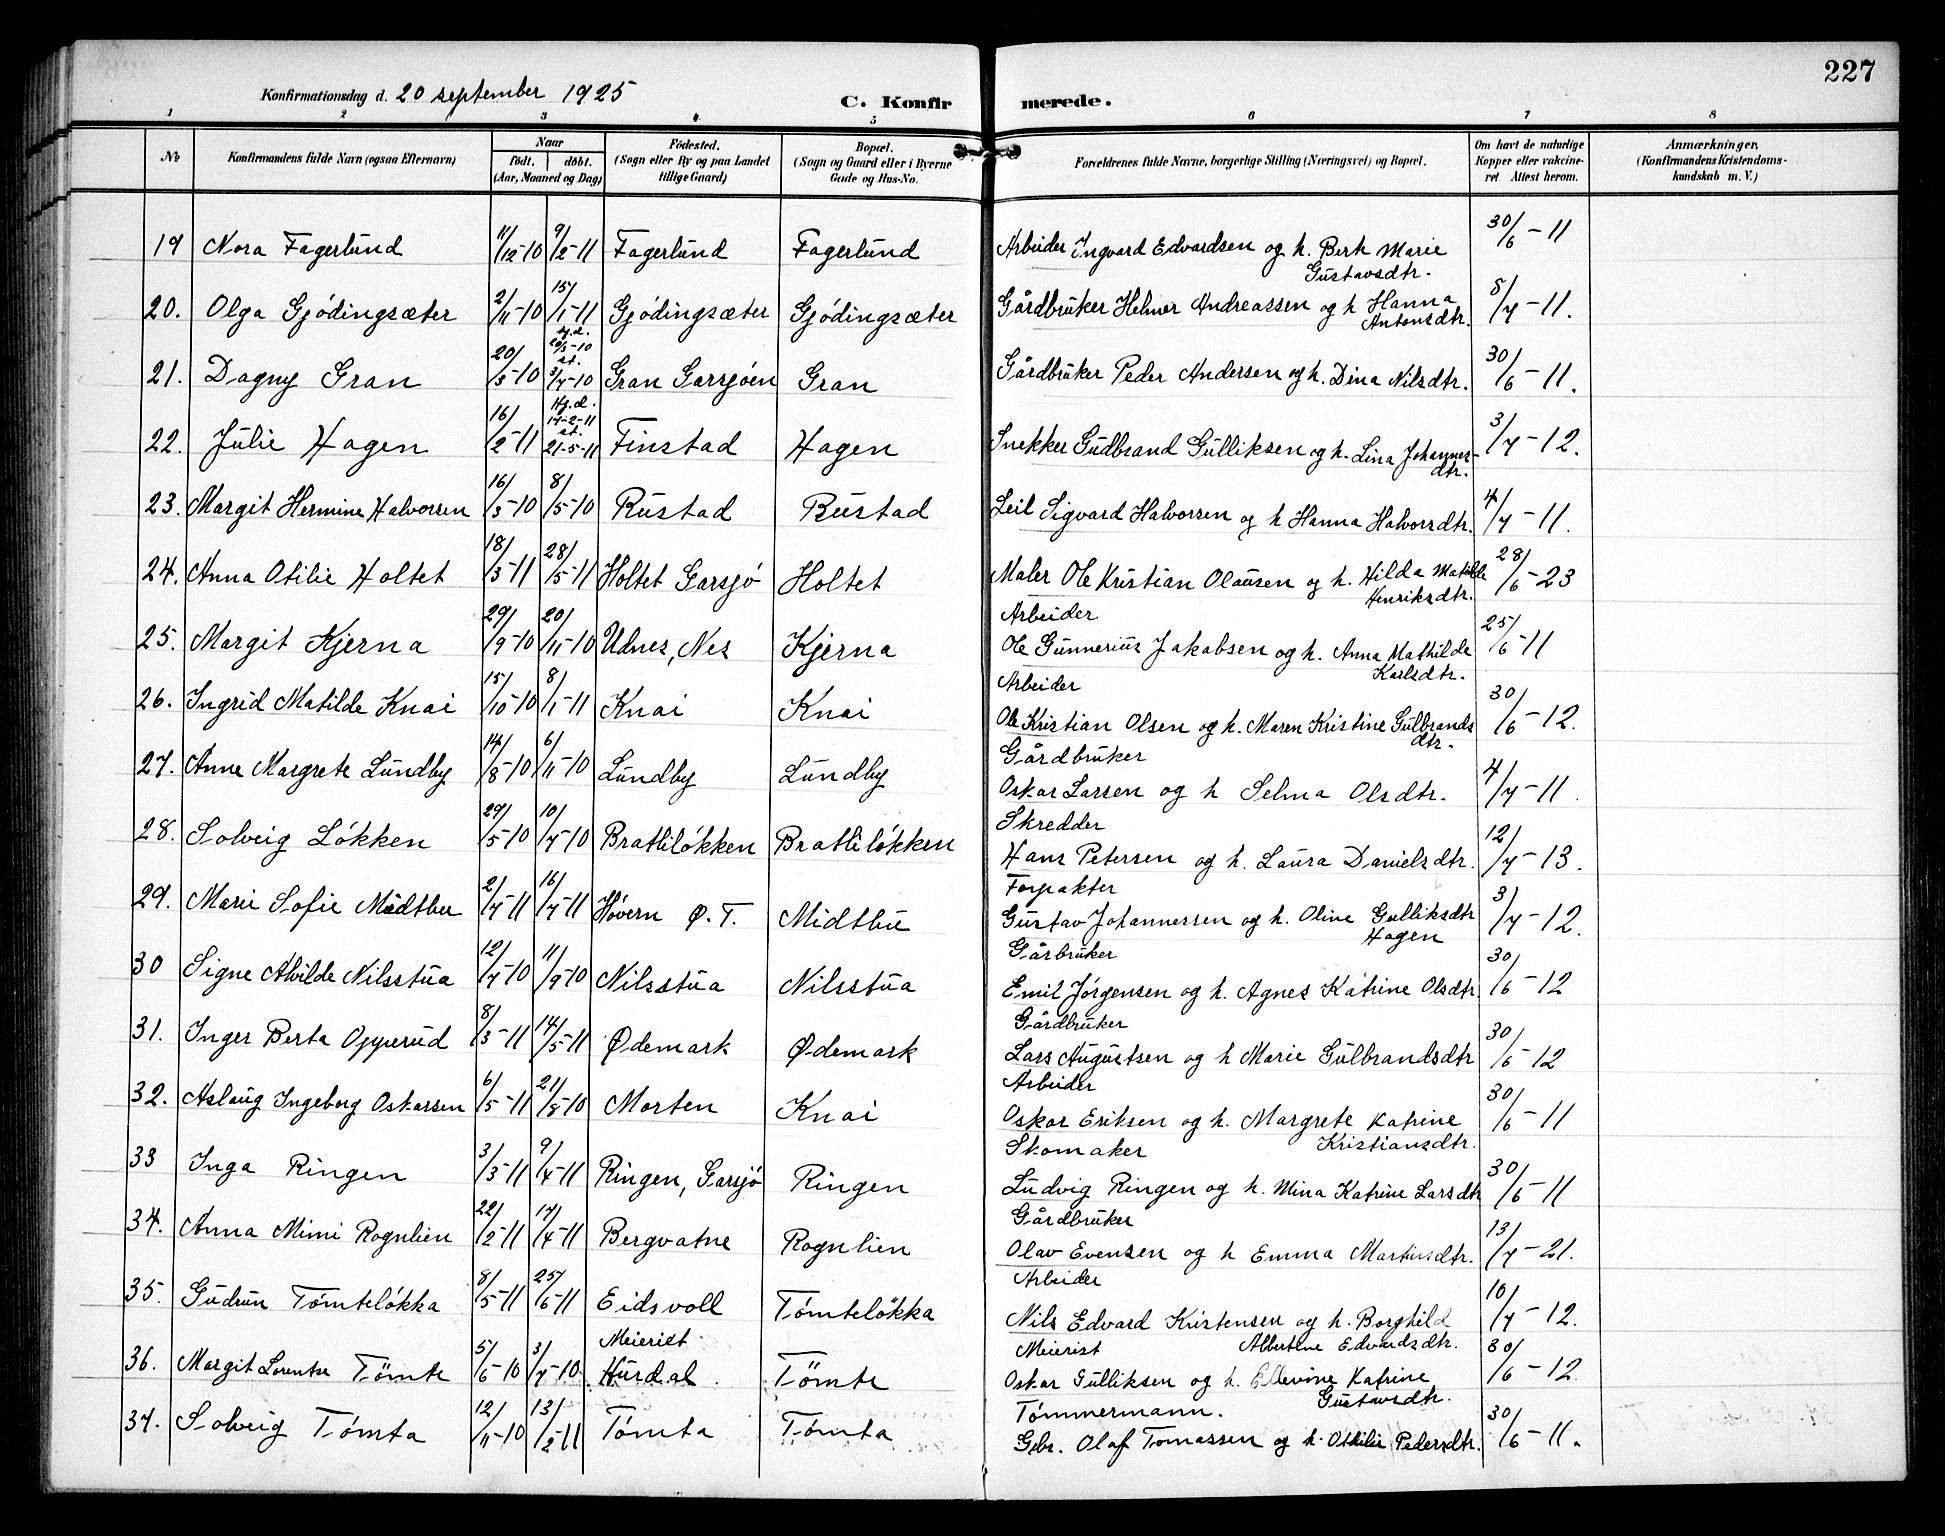 227
Konfirmationsdag d. 20 september 1925
C. Konfirmerede.
1 2 3 4 5 6 7 8
No
Konfirmandens fulde Navn (ogsaa Efternavn)
Naar
født. døbt.
(Aar, Maaned og Dag)
Fødested.
(Sogn eller By og paa Landet
tillige Gaard)
Bopæl.
(Sogn og Gaard eller i Byerne
Gade og Hus-No.
Forældrenes fulde Navne, borgerlige Stilling (Næringsvei) og Bopæl.
Om havt de naturlige
Kopper eller vakcine-
ret Attest herom.
Anmærkninger,
(Konfirmandens Kristendoms-
kundskab m. V.)
19 Nora Fagerlund 11/12-10 9/2-11 Fagerlund Fagerlund Arbeider Ingvard Edvardsen og h. Berte Marie 30/6-11
Gustavsdtr.
20. Olga Gjödingsæter 2/11-10 15/1-11 Gjödingsæter Gjödingsæter Gårdbruker Helmer Andreassen og h Hanna 8/7-11.
Antonsdtr.
21. Dagny Gran 20/3-10 hj.d. 20/3-10 st. 3/7-10 Gran Garsjöen Gran Gårdbruker Peder Andersen og h. Dina Nilsdtr. 30/6-11.
22. Julie Hagen 16/2-11 Hj.d. 17-2-11 st. 21-5-11 Finstad Hagen Snekker Gudbrand Gulliksen og h. Lina Johannes- 3/7-12.
dtr.
23. Margit Hermine Halvorsen 16/3-10 8/5-10 Rustad Rustad Leil Sigvard Halvorsen og h Hanna Halvorsdtr. 4/7-11.
24. Anna Otilie Holtet 18/3-11 28/5-11 Holtet Garsjö Holtet Maler Ole Kristian Olausen og h. Hilda Matilde 28/6-23
Henriksdtr.
Arbeider
25. Margit Kjerna 29/9-10 20/11-10 Udnes, Nes Kjerna Ole Gunnerius Jakobsen og h. Anna Mathilde 25/6-11
Karlsdtr.
Arbeider
26. Ingrid Matilde Knai 15/10-10 8/1-11 Knai Knai Ole Kristian Olsen og h. Maren Kristine Gulbrands 30/6-12.
dtr.
Gårdbruker
27. Anne Margrete Lundby 14/8-10 6/11-10 Lundby Lundby Oskar Larsen og h Selma Olsdtr. 4/7-11.
Skredder
28. Solveig Lökken 29/5-10 10/7-10 Bratlilökken Bratlilökken Hans Petersen og h. Laura Danielsdtr. 12/7-13.
Forpakter
29. Marie Sofie Midtbu 2/7-11 16/7-11 Hövern Ø.T. Midtbu Gustav Johannessen og h. Oline Gulliksdtr 3/7-12.
Hagen
Gårbruker
30 Signe Alvilde Nilsstua 12/7-10 11/9-10 Nilsstua Nilsstua Emil Jörgensen og h. Agnes Katrine Olsdtr. 30/6-12
Gårdbruker
31. Inger Berta Opperud 8/3-11 14/5-11 Ødemark Ødemark Lars Augustsen og h Marie Gulbrandsdtr 30/6-12
Arbeider
32. Aslaug Ingeborg Oskarsen 6/5-11 21/8-10 Morten Knai Oskar Eriksen og h. Margrete Katrine 30/6-11
Kristiansdtr.
Skomaker
33 Inga Ringen 3/3-11 9/4-11 Ringen, Garsjö Ringen Ludvig Ringen og h. Mina Katrine Larsdtr 30/6-11
Gårdbruker
34. Anna Mimi Rognlien 22/2-11 17/4-11 Bergvatne Rognlien Olav Evensen og h Emma Martinsdtr. 13/7-21.
Arbeider
35. Gudrun Tömtelökka 8/5-11 25/6-11 Eidsvoll Tömtelökka Nils Edvard Kristensen og h. Borghild 10/7-12.
Albertine Edvardsdtr.
Meierist
36. Margit Lorentse Tömte 5/6-10 3/7-10 Meieriet Hurdal. Tömte Oskar Gulliksen og h. Ellevine Katrine 30/6-12.
Gustavsdtr.
Tömmermann.
37. Solveig Tömta 12/11-10 13/2-11 Tömta Tömta Gebr. Olaf Tomassen og h. Othilie Pedersdtr. 30/6-11.